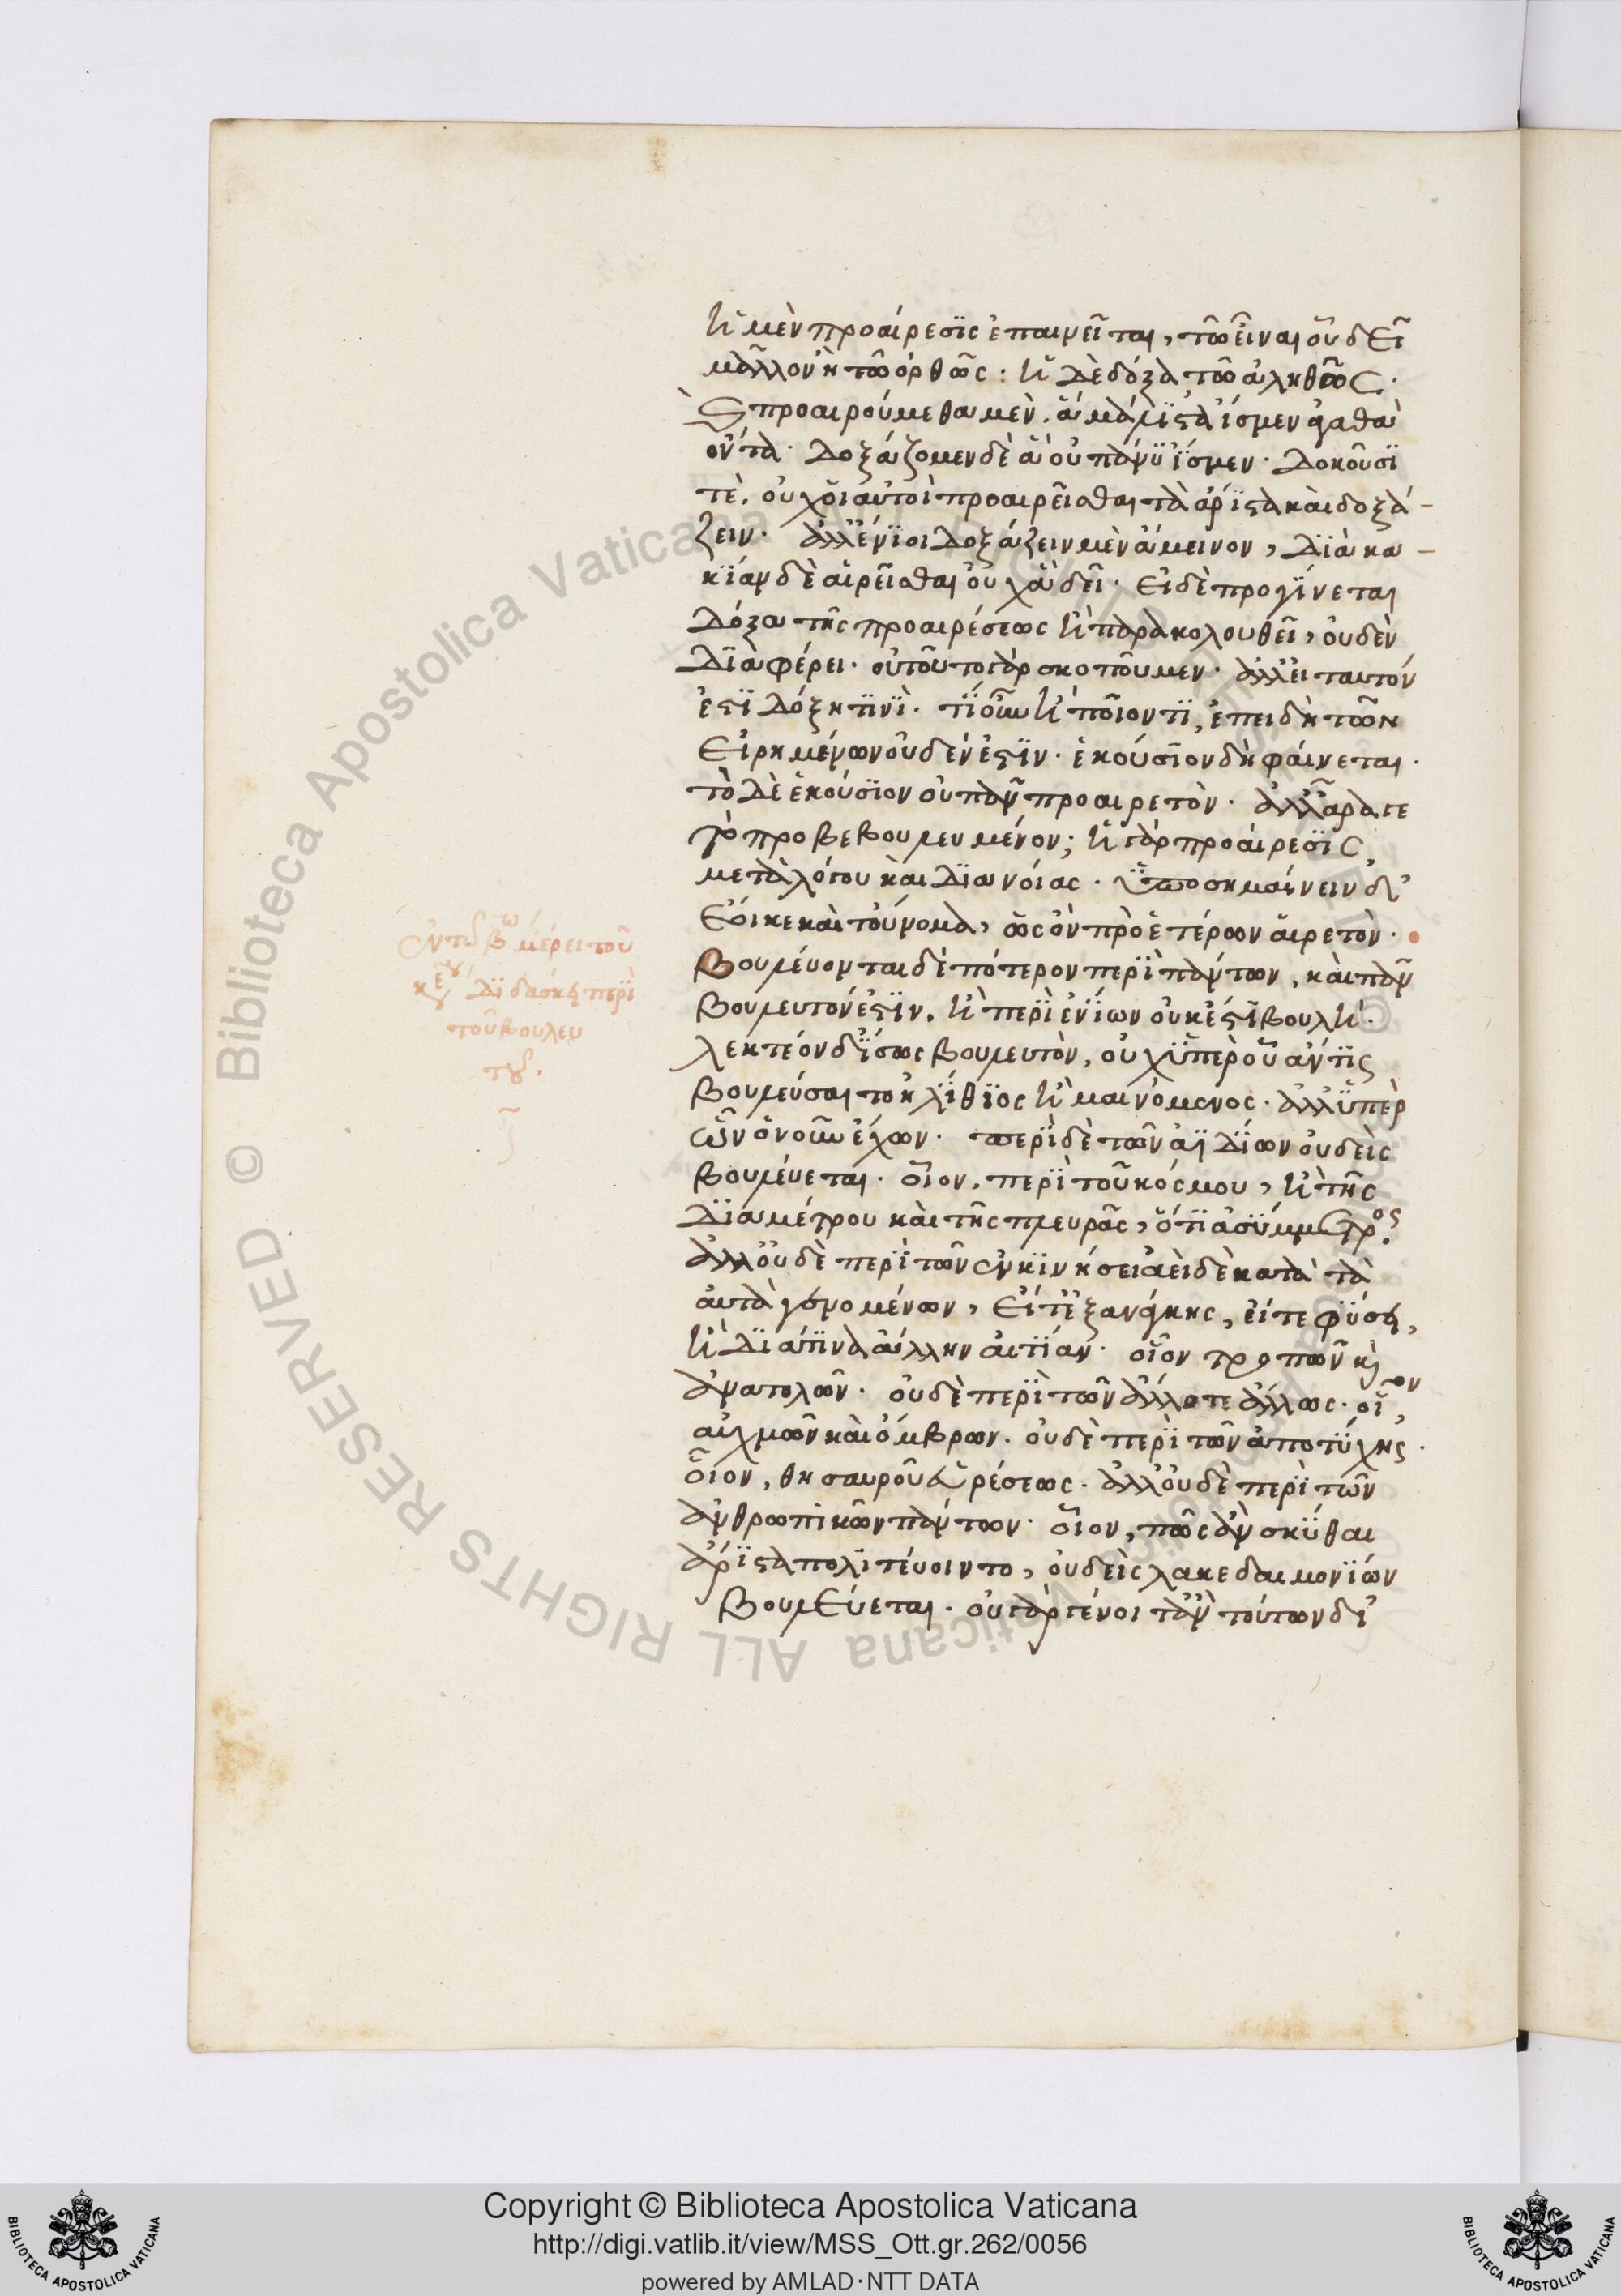 ἡ μὲν προαίρεσϊς ἐπαινεῖται, τῶ εἶναι οὗ δεῖ
μᾶλλον ἢ τῶ ὀρθῶς: ἡ δὲ δόξα τῶ ἀληθῶς.
ϛ προαιρούμεθα μὲν. ἃ μάλϊστα ἴσμεν ἀγαθὰ
ὄντα· δοξάζομεν δὲ ἃ οὐ πάνϋ ἴσμεν· δοκοῦσϊ
τὲ. οὐχ οἱ αὐτοὶ προαιρεῖσθαι τὰ ἄρϊστα καὶ δοξά-
ζειν· ἀλλ' ἔνϊοι δοξάζειν μὲν ἄμεινον, δϊὰ κα-
κϊαν δὲ αἱρεῖσθαι οὐχ ἃ δεῖ· εἰ δὲ προγϊνεται
δόξα τῆς προαιρέσεως ἢ παρακολουθεῖ, οὐδὲν
δϊαφέρει· οὐ τοῦτο γὰρ σκοποῦμεν· ἀλλ' εἰ ταυτόν
ἐστϊ δόξη τϊνϊ· τϊ οὖν ἢ ποῖον τϊ, ἐπειδὴ τῶν
εἰρημένων οὐδέν ἐστϊν· ἑκούσϊον δὴ φαίνεται·
τὸ δὲ ἑκούσϊον οὐ πᾶν προαιρετὸν· ἀλλ' ἆρα γε
τὸ προβεβουλευμένον; ἡ γὰρ προαίρεσϊς
μετὰ λόγου καὶ δϊανοίας· ὑποσημαίνειν δ'
ἔοικε καὶ τοὔνομα, ὡς ὂν πρὸ ἑτέρων αἱρετὸν·
βουλεύονται δὲ πότερον περϊ πάντων, καὶ πᾶν
βουλευτόν ἐστϊν. ἢ περϊ ἐνϊων οὐκ ἔστϊ βουλὴ·
λεκτέον δ' ἴσως βουλευτὸν, οὐχ ὑπὲρ οὗ ἄν τϊς
βουλεύσαιτο ἠλϊθϊος ἢ μαινόμενος· ἀλλ' ὑπὲρ
ὧν ὁ νοῦν ἔχων· περϊ δὲ τῶν ἀϊδϊων οὐδεὶς
βουλεύεται· οἷον, περϊ τοῦ κόσμου, ἢ τῆς
δϊαμέτρου καὶ τῆς πλευρᾶς, ὅτϊ ἀσύμμετρος.
ἀλλ' οὐδὲ περϊ τῶν ἐν κϊνήσει ἀεὶ δὲ κατὰ τὰ
αὐτὰ γινομένων, εἴτ' ἐξ ἀνάγκης, εἴτε φύσει,
ἢ δϊά τϊνα ἄλλην αἰτϊαν· οἷον τροπῶν κὶ
ἀνατολῶν· οὐδὲ περϊ τῶν ἄλλοτε ἄλλως· οἷον
αὐχμῶν καὶ ὄμβρων· οὐδὲ περϊ τῶν ἀπὸ τύχης·
οἷον, θησαυροῦ εὑρέσεως· ἀλλ' οὐδὲ περϊ τῶν
ἀνθρωπικῶν πάντων· οἷον, πῶς ἂν σκύθαι
ἄρϊστα πολϊτεύοιντο, οὐδεὶς λακεδαιμονϊων
βουλεύεται· οὐ γὰρ γένοιτ' ἂν τούτων δι'
ἐν τῶ βω μέρει τοῦ
κεγ' Διδάσκει περϊ
τοῦ βουλευ
τοῦ.